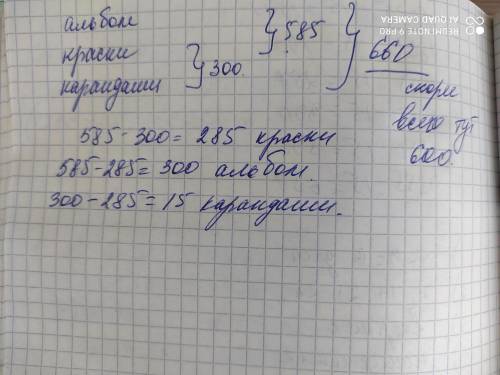 SHOT ON REDMI NOTE 9 PRO
AI QUAD CAMERA
альбом
краски
карандаши
585
300
660
скорее
всего тут
600.
585-300=285 краски
585-285=300 альбом.
300-285=15 карандаши.